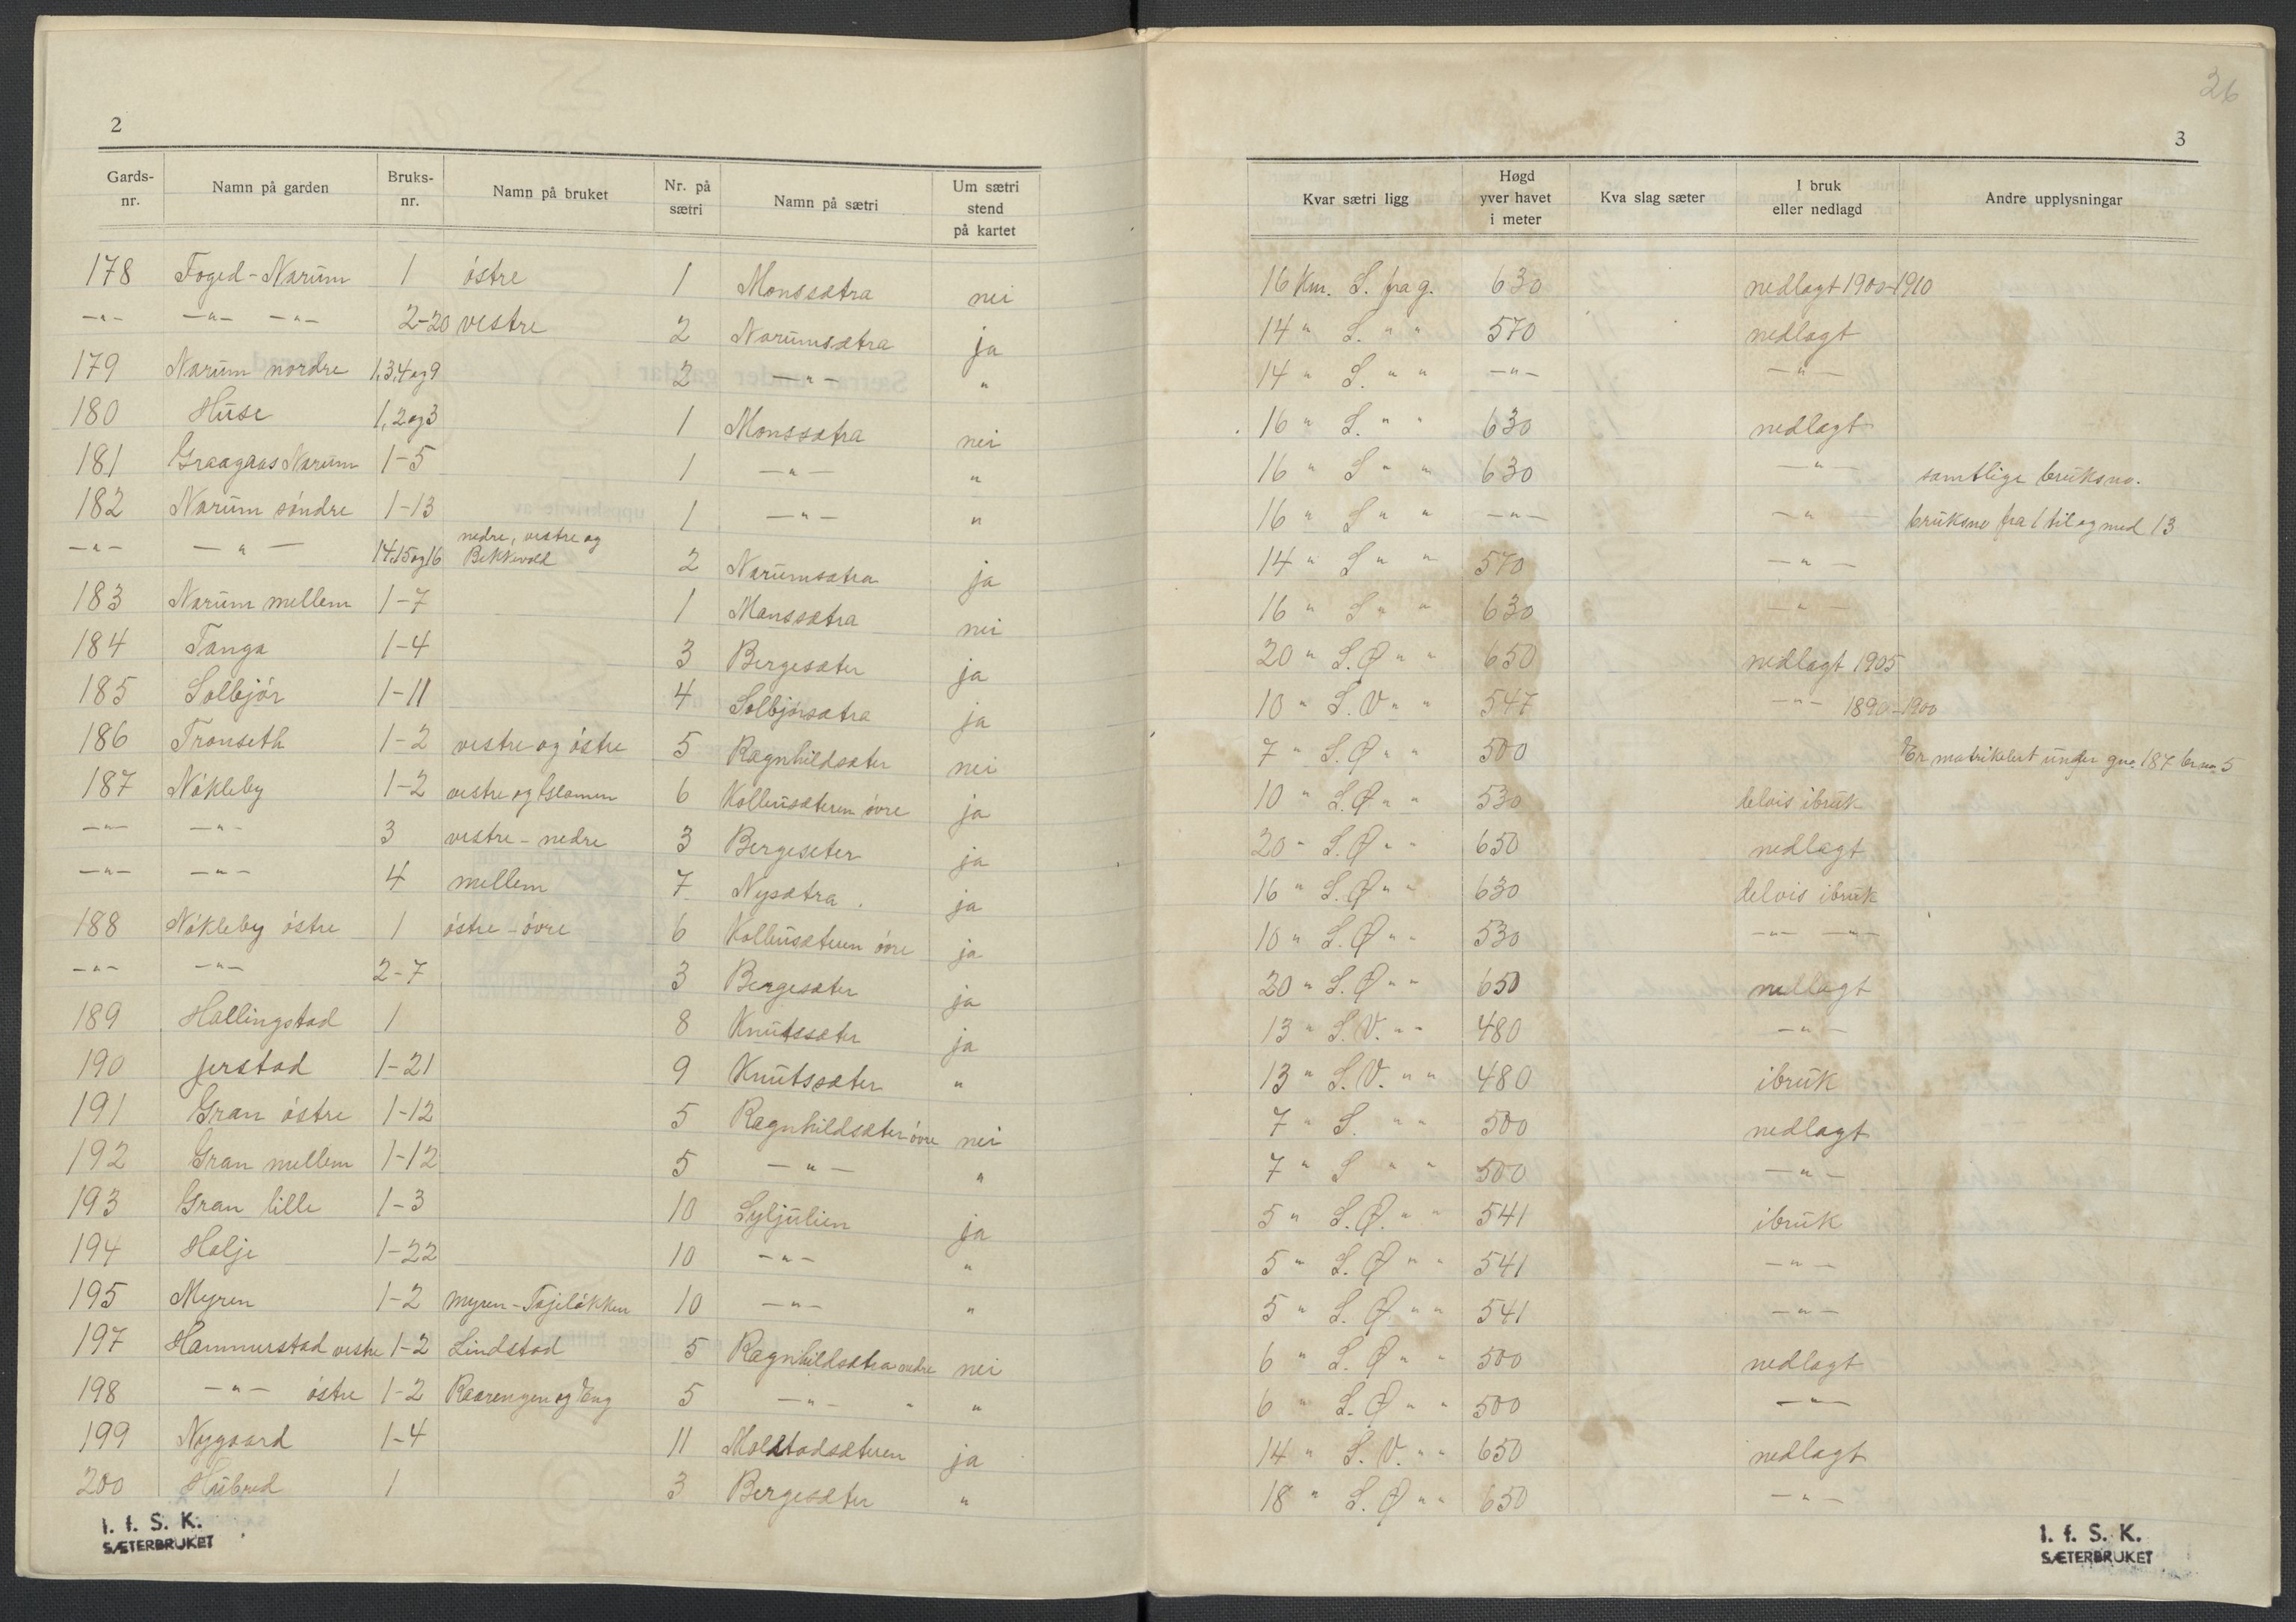 26
2
Gards-nr. | Namn på garden | Bruks-nr. | Namn på bruket | Nr. på sætri | Namn på sætri | Um sætri stend på kartet
178 | Foged-Narum | 1 | östre | 1 | Monssætra | nei
-"- | -"- -"- | 2-20 | vestre | 2 | Narumsætra | ja
179 | Narum nordre | 1,3,4 og 9 | | 2 | -"- | "
180 | Huse | 1,2 og 3 | | 1 | Monssætra | nei
181 | Graagaas Narum | 1-5 | | 1 | -"- | "
182 | Narum söndre | 1-13 | | 1 | -"- | "
-"- | -"- | 14,15 og 16 | nedre, vestre og Bekkevold | 2 | Narumsætra | ja
183 | Narum mellem | 1-7 | | 1 | Monssætra | nei
184 | Tanga | 1-4 | | 3 | Bergesæter | ja
185 | Solbjör | 1-11 | | 4 | Solbjörsætra | ja
186 | Tronseth | 1-2 | vestre og östre | 5 | Ragnhildsæter | nei
187 | Nökleby | 1-2 | vestre og | 6 | Kolleusæteren övre | ja
-"- | -"- | 3 | vestre - nedre | 3 | Bergeseter | ja
-"- | -"- | 4 | mellem | 7 | Nysætra. | ja
188 | Nökleby östre | 1 | östre - övre | 6 | Kolleusæteren övre | ja
-"- | -"- | 2-7 | | 3 | Bergesæter | ja
189 | Hallingstad | 1 | | 8 | Knutssæter | ja
190 | Jerstad | 1-21 | | 9 | Knutssæter | "
191 | Gran östre | 1-12 | | 5 | Ragnhildsæter övre | nei
192 | Gran mellem | 1-12 | | 5 | -"- | "
193 | Gran lille | 1-3 | | 10 | Lyljulien | ja
194 | Halje | 1-22 | | 10 | -"- | "
195 | Myren | 1-2 | Myren - Tajelökken | 10 | -"- | "
197 | Hammerstad vestre | 1-2 | Lindstad | 5 | Ragnhildsætra nedre | nei
198 | -"- östre | 1-2 | Raarengen og Eng | 5 | -"- " | "
199 | Nygaard | 1-4 | | 11 | Molstadsæteren | ja
200 | Hubred | 1 | | 3 | Bergesæter | "
I. f. S. K.
SÆTERBRUKET
3
Kvar sætri ligg | Høgd yver havet i meter | Kva slag sæter | I bruk eller nedlagd | Andre upplysningar
16 Km. S. fra g. | 630 | | nedlagt 1900-1910
14 " S. " " | 570 | | nedlagt
14 " S. " " | -"- | | -"-
16 " S. " " | 630 | | nedlagt
16 " S " " | 630 | | -"- | samtlige bruksno.
16 " S " " | -"- | | -"- | bruksno fra 1 til og med 13
14 " S " " | 570 | | -"-
16 " S " " | 630 | | -"-
20 " S.Ø " " | 650 | | nedlagt 1905
10 " S.V " " | 547 | | -"- 1890-1900
7 " S.Ø " " | 500 | | | Er matrikulert under gno. 187 brno. 5
10 " S.Ø " " | 530 | | delvis ibruk
20 " S.Ø " " | 650 | | nedlagt
16 " S.Ø " " | 630 | | delvis ibruk
10 " S.Ø " " | 530 | | -"- -"-
20 " S.Ø " " | 650 | | nedlagt
13 " S.V. " " | 480 | | -"-
13 " S.V. " " | 480 | | ibruk
7 " S. " " | 500 | | nedlagt
7 " S " " | 500 | | -"-
5 " S.Ø. " " | 541 | | ibruk
5 " S.Ø " " | 541 | | -"-
5 " S.Ø " " | 541 | | -"-
6 " S.Ø " " | 500 | | nedlagt
6 " S.Ø " " | 500 | | -"-
14 " S.V. " " | 650 | | nedlagt
18 " S.Ø " " | 650 | | -"-
I. f. S. K.
SÆTERBRUKET